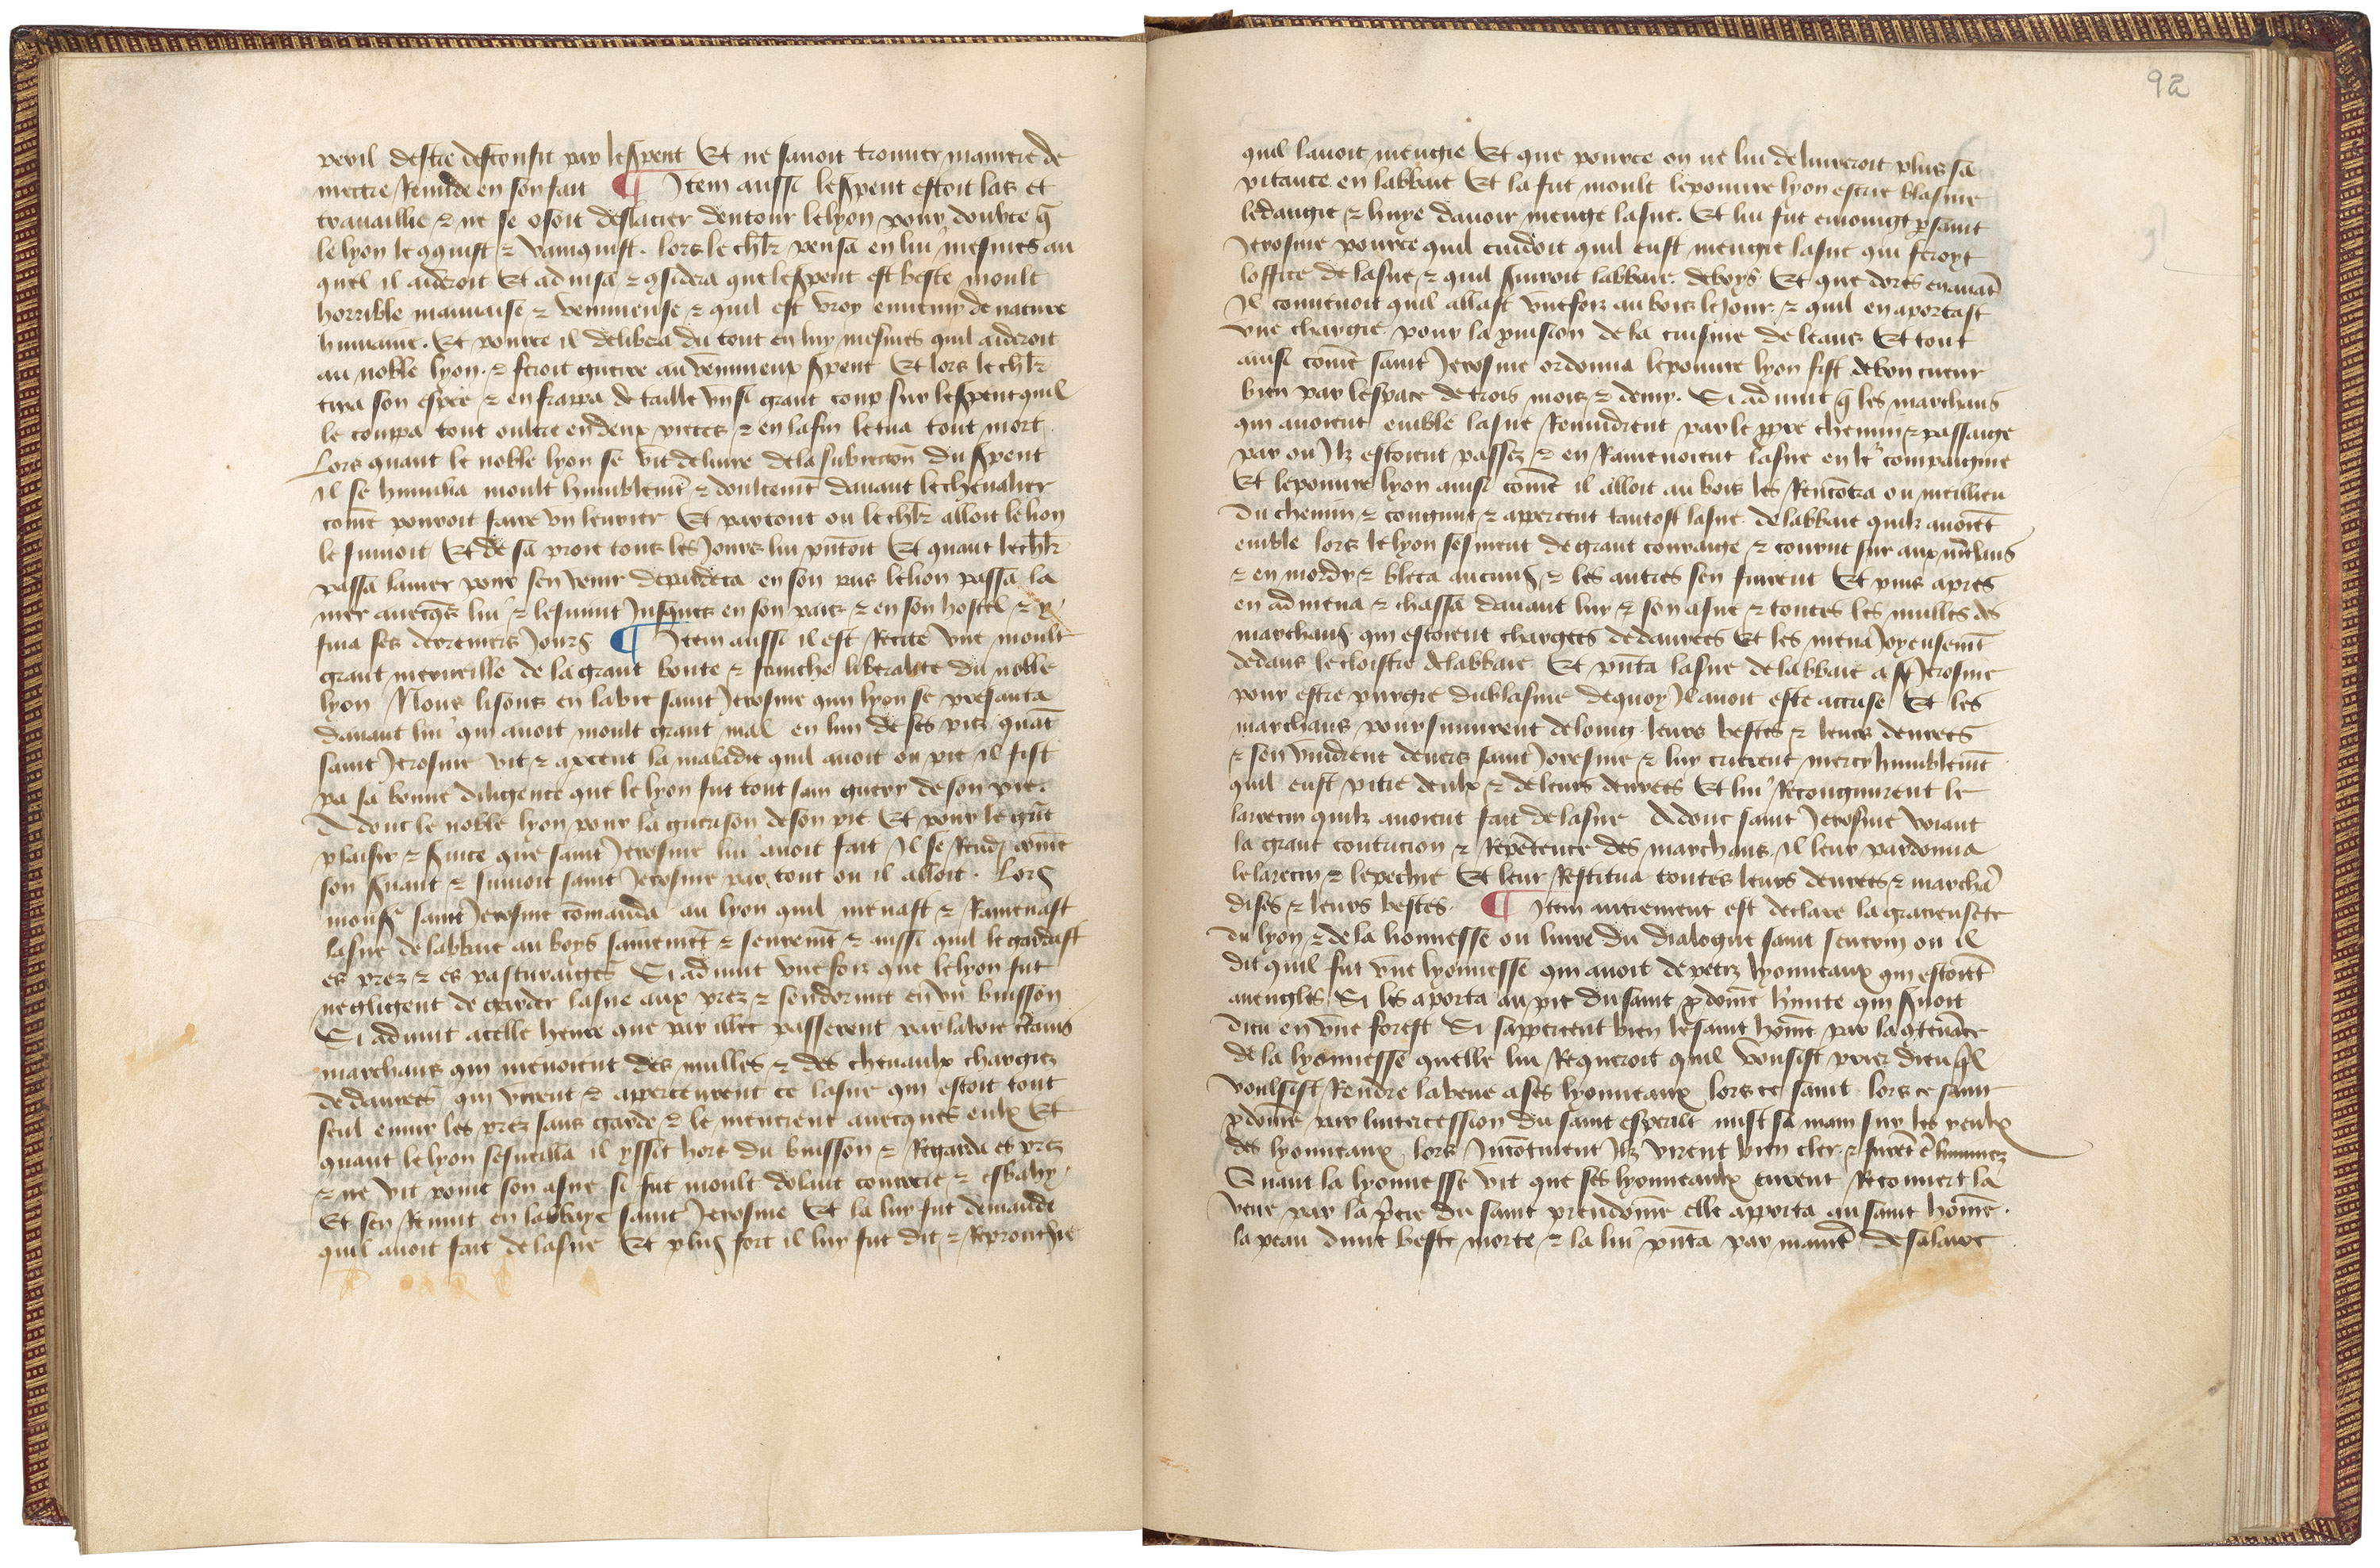 peril destre desconfit par le spent Et ne sauoit trouuer maniere de
mectre Remide en son fait ¶ Item aussi le spent estoit las et
trauaillie & ne se osoit deslacier dentour le lyon pour doubte q̄
le lyon le 9quist & vainquist. lors le chlr̄ pensa en lui mesmes au
quel il aideroit Et aduisa & 9sidera que le spent est beste moult
horrible mauuaise & venimeuse & quil est vroy ennemy de nature
humaine. Et pource il delibera du tout en luy mesmes quil aideroit
au noble lyon. & feroit guerre au venimeux spent Et lors le chlr̄
tira son espee & en frappa de taille vn si grant coup sur le spent quil
le couppa tout oultre en deux pieces & en la fin le tua tout mort.
Lors quant le noble lyon se vit deliure de la subiecion̄ du spent
il se humilia moult humblemt̄ & doulcemt̄ dauant le cheualier
com̄e pouroit faire vn leurier Et partout ou le chlr̄ alloit le lion
le suiuoit Et de sa proie tous les Jours lui pn̄toit Et quant le chlr̄
passa la mer pour sen venir en son pais le lion passa la
mer auecq̄s lui & le suiuit Jusques en son pais & en son hostel & y
fina ses derreniers Jours ¶ Item aussi il est Recite vne moult
grant merueille de la grant bonte & franche liberalite du noble
lyon Nous lisons en la vie saint Jerosme qun lyon se presanta
dauant lui qui auoit moult grant mal en lun de ses piez quāt
saint Jerosme vit & apercut la maladie quil auoit ou pie il fist
pa sa bonne diligence que le lyon fut tout sain guery de son pie.
Adonc le noble lyon pour la guerison de son pie Et pour le gr̄t
plaisir & suice que saint Jerosme lui auoit fait Il se Rendi com̄e
son suant & suiuoit saint Jerosme par tout ou il alloit. Lors
monsr saint Jerosme com̄anda au lyon quil menast & Ramenast
lasne de labbaie au boys sainemēt & seuremt̄ & aussi quil le gardast
es prez & es pasturaiges Si aduint vnefois que le lyon fut
negligent de garder lasne aux prez & sendormit en vn buisson
Si aduint a celle heure que par illec passerent par la voie ct̄ains
marchans qui menoient des mulles & des cheuaulx chargiez
de danrees qui virent & aperceurent ce lasne qui estoit tout
seul emmy les prez sans garde & le menerent auecques eulx Et
quant le lyon sesueilla il yssit hors du buisson & Regarda es prez
& ne vit point son asne si fut moult dolant courcie & esbahy
Et sen Reuint en labbaye saint Jerosme Et la luy fut demande
quil auoit fait de lasne Et plus fort il luy fut dit & Reprouchie
92
quil lauoit mengie Et que pource on ne lui deliureroit plus sa
pitance en labbaie Et la fut moult le pouure lyon escrie blasme
ledangie & huye dauoir menge lasne. Et lui fut enioingt p̄ saint
Jerosme pource quil cuidoit quil eust mengie lasne qui feroyt
loffice de lasne & quil suiroit labbaie de boys Et que dores enauāt
Il conuenoit quil allast vnefois au bois le Jour & quil en aportast
vne chargie pour la puision de la cuisine de leans Et tout
ainsi com̄e saint Jerosme ordonna le pouure lyon fist de bon cueur
bien par lespace de trois mois & demy. Si aduint q̄ les marchans
qui auoient emble lasne Reuindrent par le ppre chemin & passaige
par ou Ilz estoient passez & en Ramenoient lasne en lr̄ compaignie
Et le pouure lyon ainsi com̄e il alloit au bois les Rencōtra ou meillieu
du chemin & congnut & apercut tantost lasne de labbaie quilz auoiēt
emble lors le lyon sesment de grant couraige & courut sur aux mr̄chans
& en mordy & bleca aucuns & les autres sen fuirent Et puis apres
en admena & chassa dauant luy & son asne & toutes les mulles des
marchans qui estoient chargees de danrees Et les mena Joyeusemt̄
dedans le cloistre de labbaie Et pn̄ta lasne de labbaie a st Jerosme
pour estre purgie du blasme de quoy Il auoit este accuse Et les
marchans poursuiuirent de loing leurs bestes & leurs denrees
& sen vindrent deuers saint Jerosme & luy crierent mercy humblemt̄
quil eust pitie deulx & de leurs denrees Et lui Recongnurent le
larrecin quilz auoient fait de lasne Adonc saint Jerosme voiant
la grant contricion & Repētence des marchans Il leur pardonna
le larecin & le pechie Et leur Restitua toutes leurs denrees & marchā
dises & leurs bestes. ¶ Item autrement est declare la gracieusete
du lyon & de la lionnesse ou liure du dialogue saint seuerin ou il
dit quil fut vne lyonnesse qui auoit de petiz lyonneaux qui estoiēt
auengles Si les aporta au pie du saint pdom̄e h̄mite qui suoit
dieu en vne forest Si sappercut bien le saint hom̄e par la 9tenāce
de la lyonnesse quelle lui Requeroit quil voulsist prier dieu ql̄
voulsist Rendre la veue a ses lyonneaux lors ce saint lors ce saint
pdom̄e par lintercession du saint esperit mist sa main sur les yeulx
des lyonneaux lors Incōtinent Ilz virent bien cler & furēt
Quant la lyonnesse vit que ses lyonneaulx eurent Recouuert la
veue par la p̄ere du saint preudom̄e elle apporta au saint hom̄e.
la peau dune beste morte & la lui pn̄ta par manie͞ de salaire